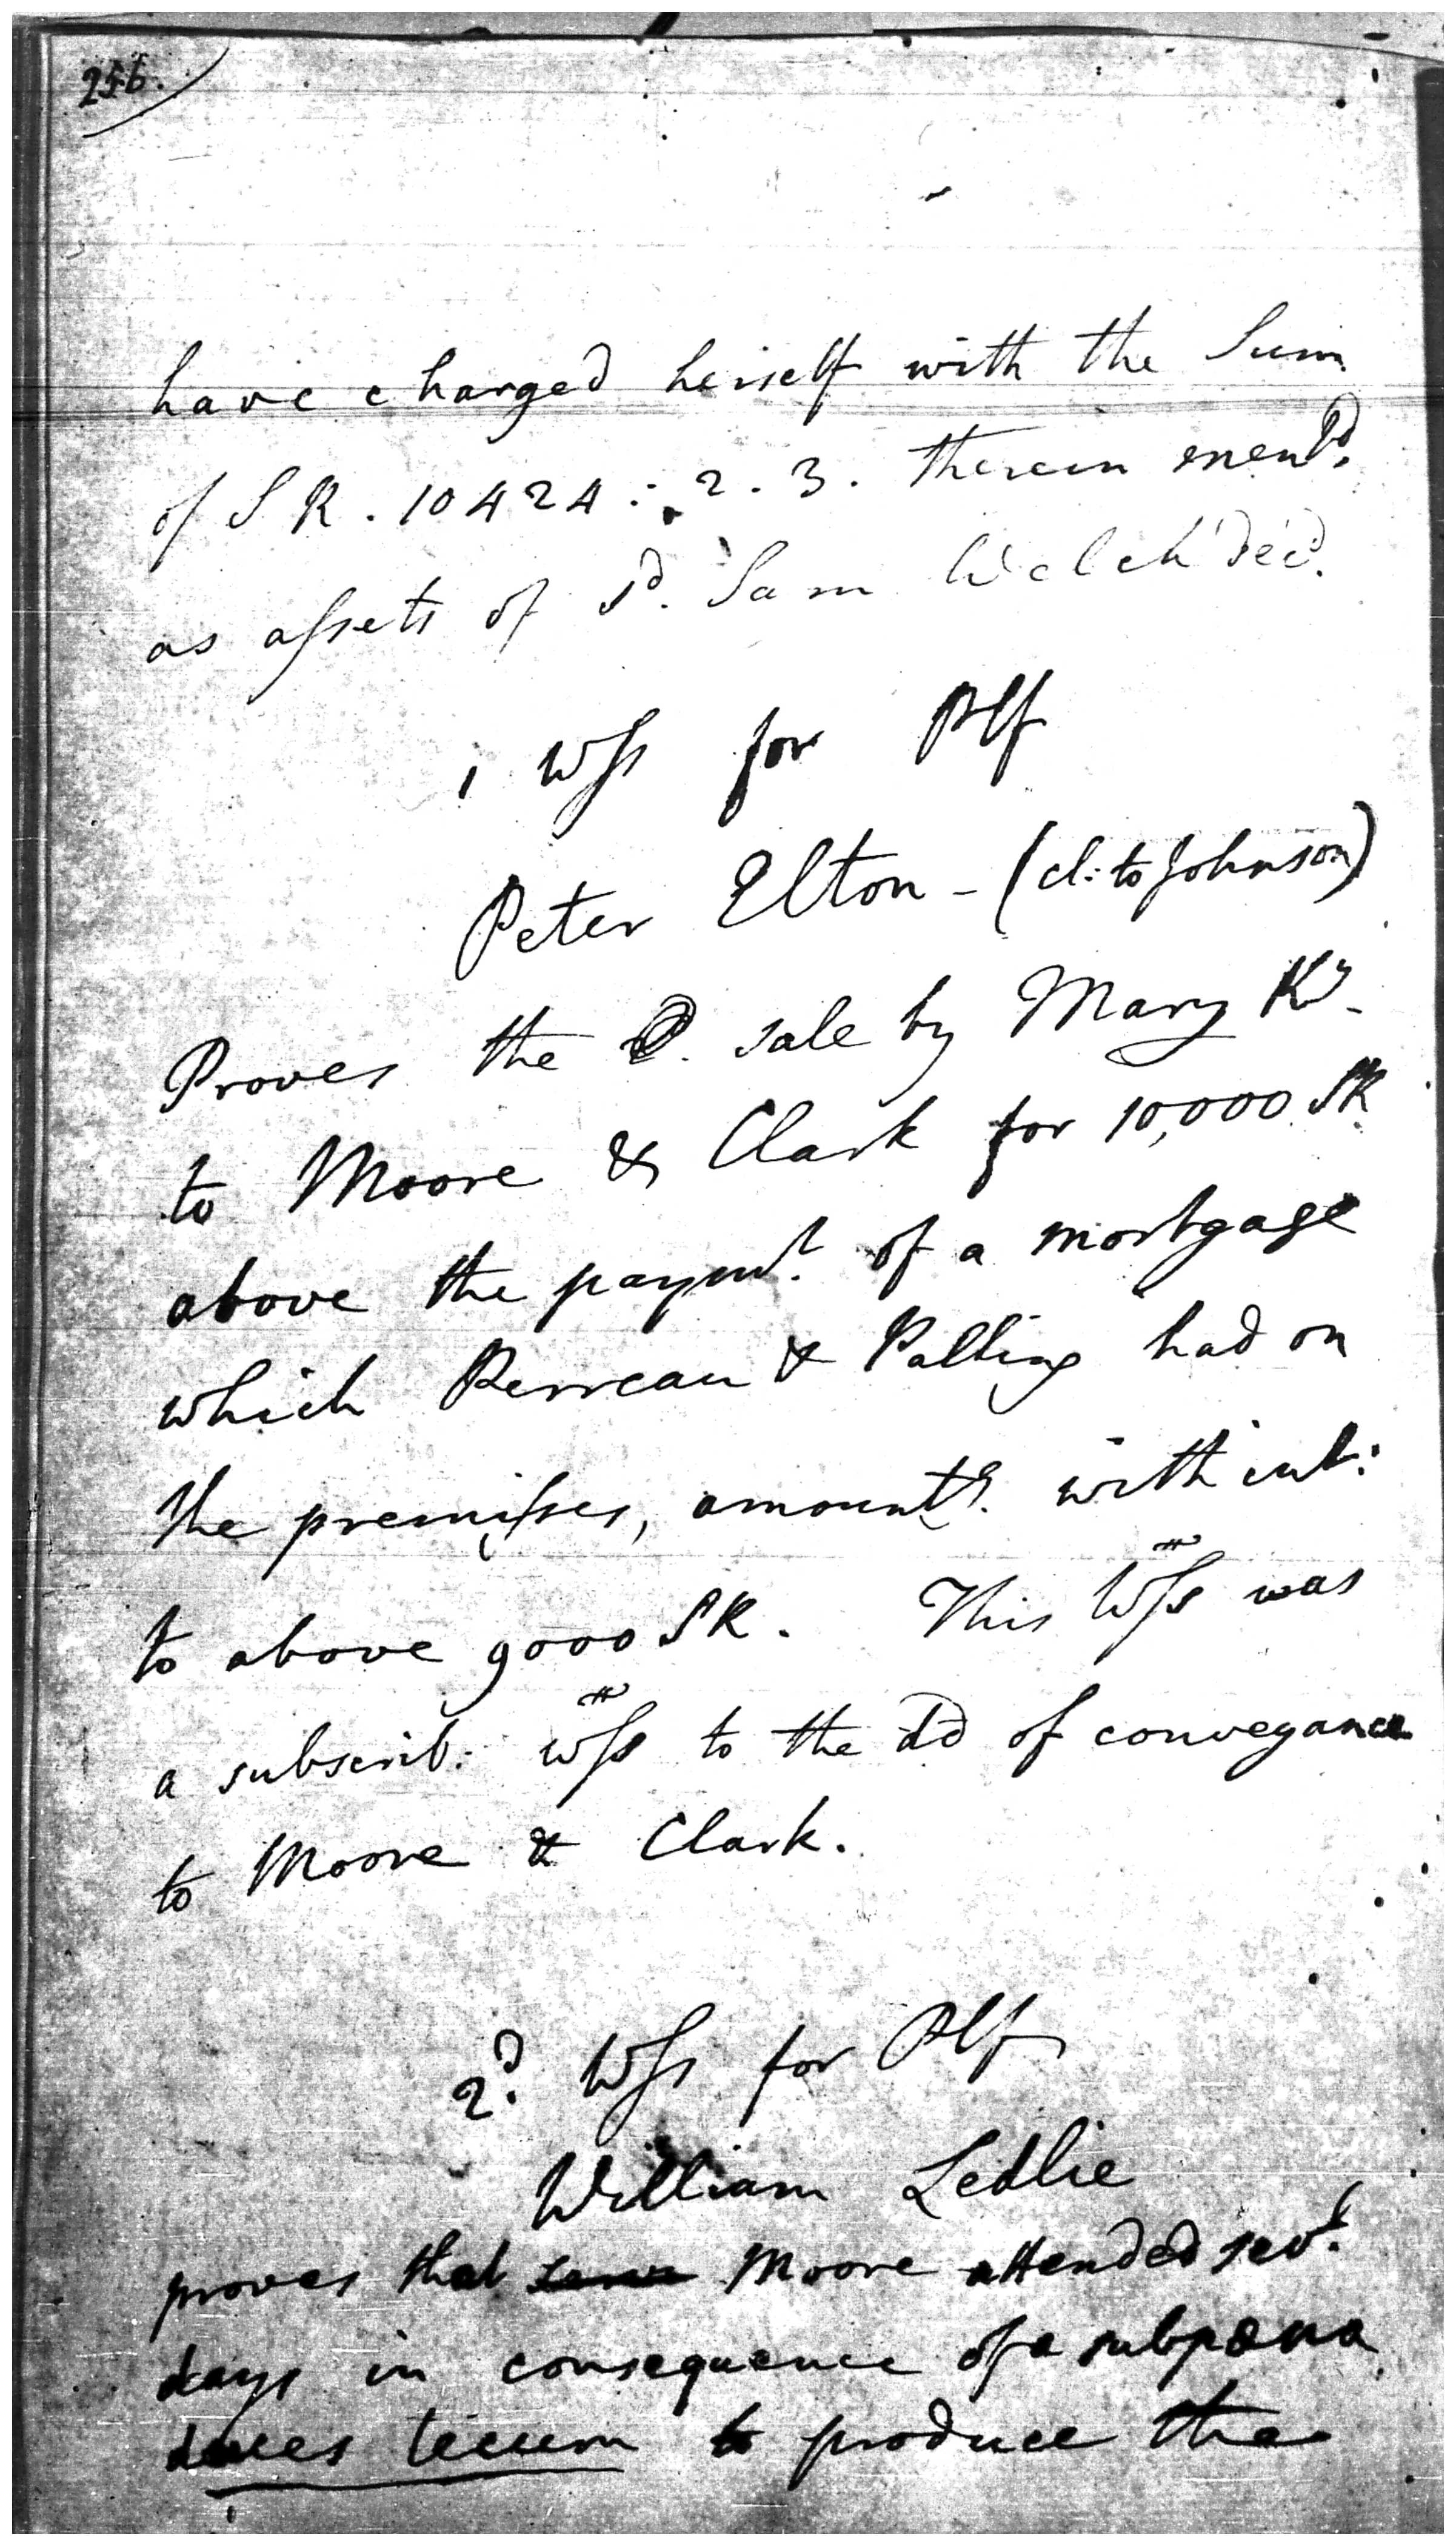 256.
have charged herself with the Sum
of S R. 10424 : 2. 3. therein ment^d.
as assets of s^d. Sam Welch dec'd.
1 Wss for Plf
Peter Elton - (cl: to Johnson)
Proves the sale by Mary K^y.
to Moore & Clark for 10,000 SR
above the paym^t. of a mortgage
which Perreau & Palling had on
the premisses, amount^g. with int:
to above 9000 SR. This Wss was
a subscrib: wss to the d̄d of conveyance
to Moore & Clark.
2^d. Wss for Plf
William Ledlie
proves that Moore attended sev^l.
days in consequence of a subpœna
duces tecum to produce the